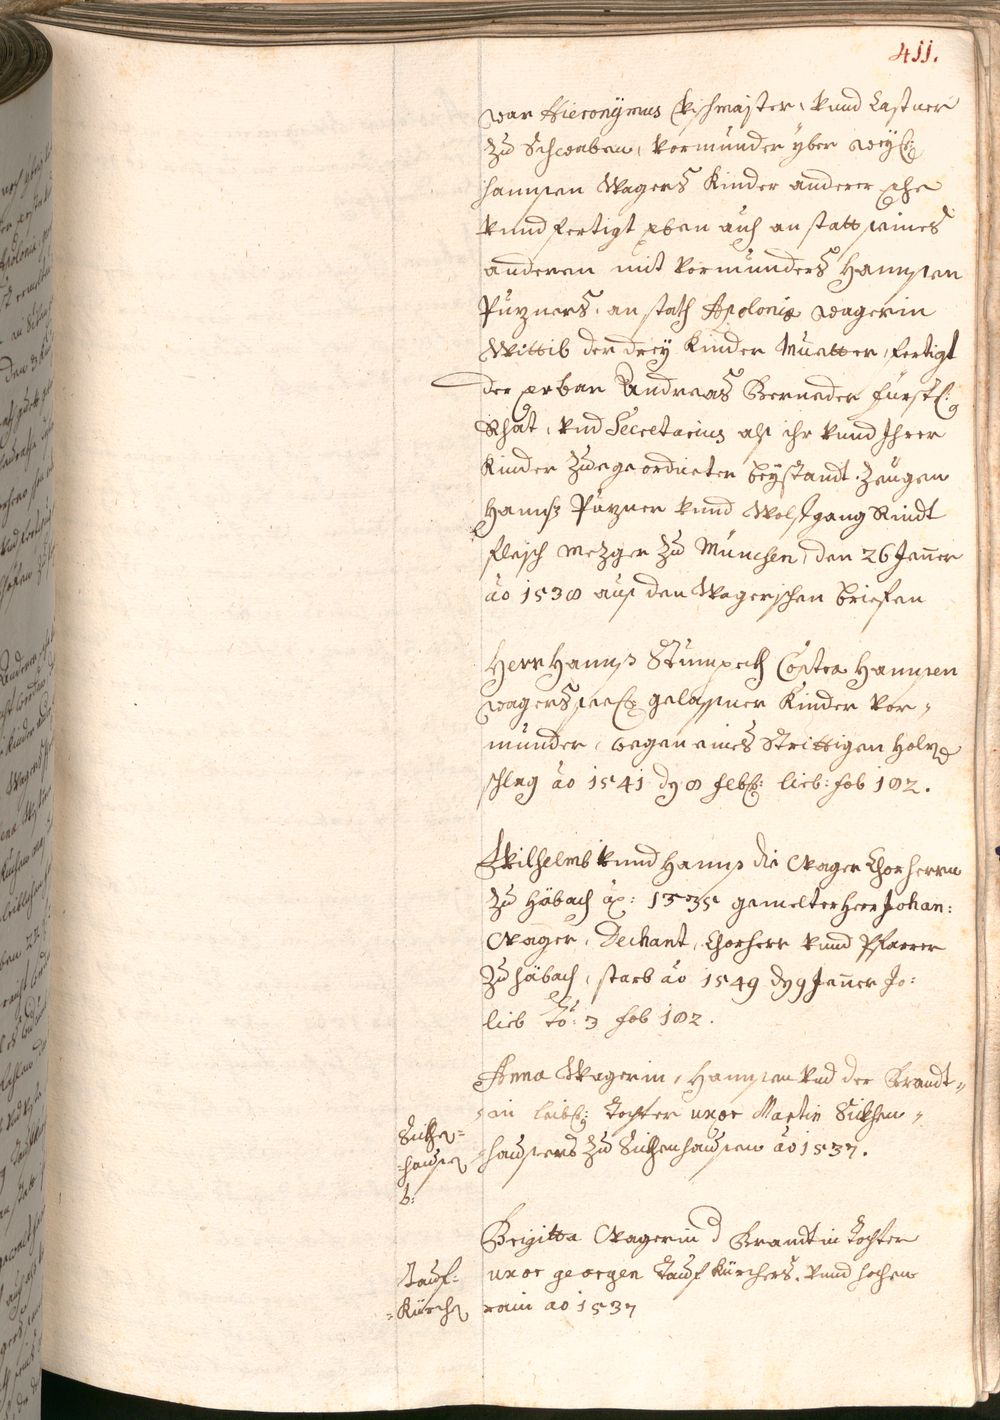 411.
war Hieronÿmus Kischmaister, vnnd Castner
zu Schwaben, Vormunder yber weyl:
hannsen Wagers Kinder anderer Ehe
vnnd fertigt eben auch an statt seines
anderen mit Vormunders Hannsen
Püzners, an stath Apoloniæ wagerin
Wittib der drey Kinder Muetter, fertigt
der erbar Andreas Berneder fürstl:
Rhat, vnd Secretarius alß ihr vnnd Ihrer
Kinder Zuegeordneter beÿstandt. Zeugen
Hannß Püzner vnnd Wolfgang Rindt
fleisch Mezger zu München, den 26 Jenner
ao 1538 auß den Wagerischen briefen
Herr Hannß Stumpeckh Contra Hannsen
wagers seel: gelassner Kinder Vor,
münder, wegen eines Strittigen Holz
schlag ao 1541 dy 8 febr: lieb: fol 102.
Wilhelmb vnnd Hannß die Wager Chorherrn
zu Häbach ao: 1535 gemelter Herr Johan:
Wager, Dechant, Chorherr vnnd Pfarrer
zu häbach, starb ao 1549 dy 9 Jenner Jo:
lieb to: 3 fol 102.
Anna Wagerin, Hannsen vnd der Brandt,
in leibl: Tochter uxor Martin Sickhen,
Sickhen=
hausers zu Sickhenhausen ao 1537.
=hausen
b:
Brigitta Wagerin d Brandtin Tochter
Tauf=
uxor georgen Tauf Kürchers. vnnd hohen
=Kürchen
rain ao 1537